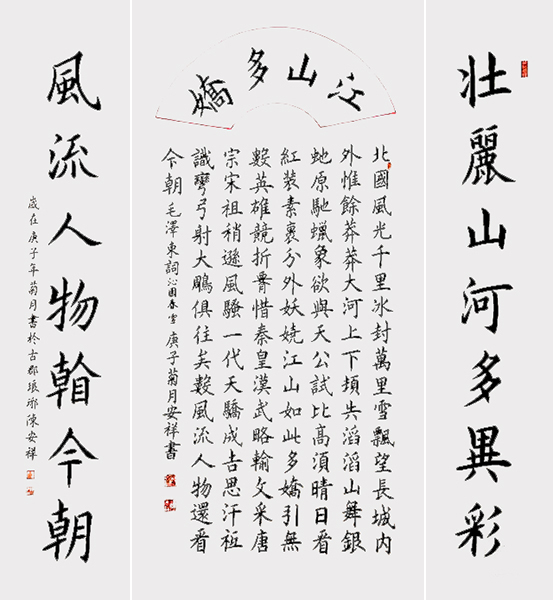 壯麗山河多異彩
江山多嬌
北國風光千里冰封萬里雪飄望長城內
外惟餘莽莽大河上下頓失滔滔山舞銀
虵原馳蠟象欲與天公試比高須晴日看
紅裝素裹分外妖嬈江山如此多嬌引無
數英雄競折腰惜秦皇漢武略輸文采唐
宗宋祖稍遜風騷一代天驕成吉思汗衹
識彎弓射大鵰俱往矣數風流人物還看
今朝 毛澤東詞沁園春雪 庚子菊月安祥書
風流人物看今朝
歲在庚子年菊月書於古郡琅琊陳安祥